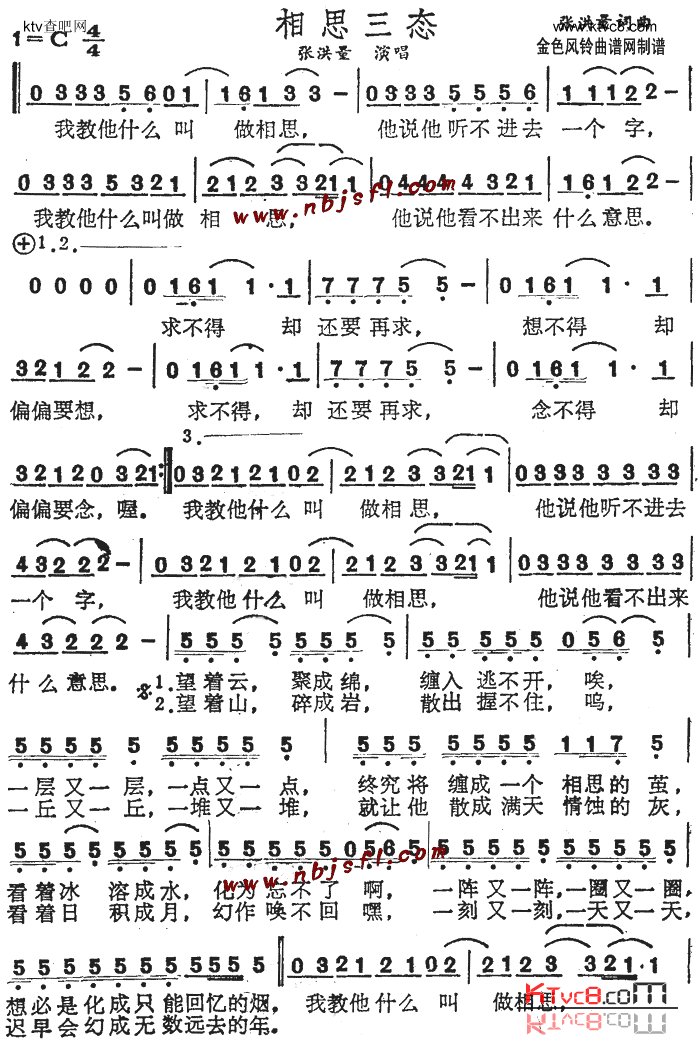 ktv杳吧网
相思三态
张洪量词曲
www.ktvc8.com
1=C 4/4
张洪量 演唱
金色风铃曲谱网制谱
0 3 3 3 5 6 0 1 | 1 6 1 3 3 – | 0 3 3 3 5 5 5 6 | 1 1 1 2 2 – |
我教他什么 叫 做相思, 他说他听不进去 一个 字,
0 3 3 3 5 3 2 1 | 2 1 2 3 3 2 1 1 | 0 4 4 4 4 3 2 1 | 1 6 1 2 2 – |
我教他什么叫做 相 思, 他说他看不出来 什么意思。
www.nbjsfl.com
1.2.
0 0 0 0 | 0 1 6 1 1 · 1 | 7 7 7 5 5 – | 0 1 6 1 1 · 1 |
求不得 却 还要再求, 想不得 却
3 2 1 2 2 – | 0 1 6 1 1 · 1 | 7 7 7 5 5 – | 0 1 6 1 1 · 1 |
偏偏要想, 求不得, 却 还要再求, 念不得 却
3.
3 2 1 2 0 3 2 1 :‖ 0 3 2 1 2 1 0 2 | 2 1 2 3 3 2 1 1 | 0 3 3 3 3 3 3 3 |
偏偏要念, 喔。 我教他什么 叫 做相思, 他说他听不进去
4 3 2 2 2 – | 0 3 2 1 2 1 0 2 | 2 1 2 3 3 2 1 1 | 0 3 3 3 3 3 3 3 |
一个 字, 我教他什么 叫 做相思, 他说他看不出来
4 3 2 2 2 – | 5 5 5 5 5 5 | 5 5 5 5 5 0 5 6 5 |
什么意思。 1.望着云, 聚成绵, 缠入 逃不开, 唉,
2.望着山, 碎成岩, 散出 握不住, 呜,
5 5 5 5 5 5 5 5 5 5 | 5 5 5 5 5 5 5 1 1 7 5 |
一层又一层,一点又一点, 终究将 缠成一个 相思的 茧,
一丘又一丘,一堆又一堆, 就让他 散成满天 情蚀的灰,
5 5 5 5 5 5 | 5 5 5 5 5 0 5 6 5 | 5 5 5 5 5 5 5 5 5 5 |
看着冰 溶成水, 化为忘不了 啊, 一阵又一阵,一圈又一圈,
看着日 积成月, 幻作唤不回 嘿, 一刻又一刻,一天又一天,
www.nbjsfl.com
5 5 5 5 5 5 5 5 5 5 5 ‖ 0 3 2 1 2 1 0 2 | 2 1 2 3 3 2 1 · 1 |
想必是化成只能回忆的烟, 我教他什么 叫 做相思,
迟早会幻成无数远去的年。
KTVC8.COM
KTVC8.COM